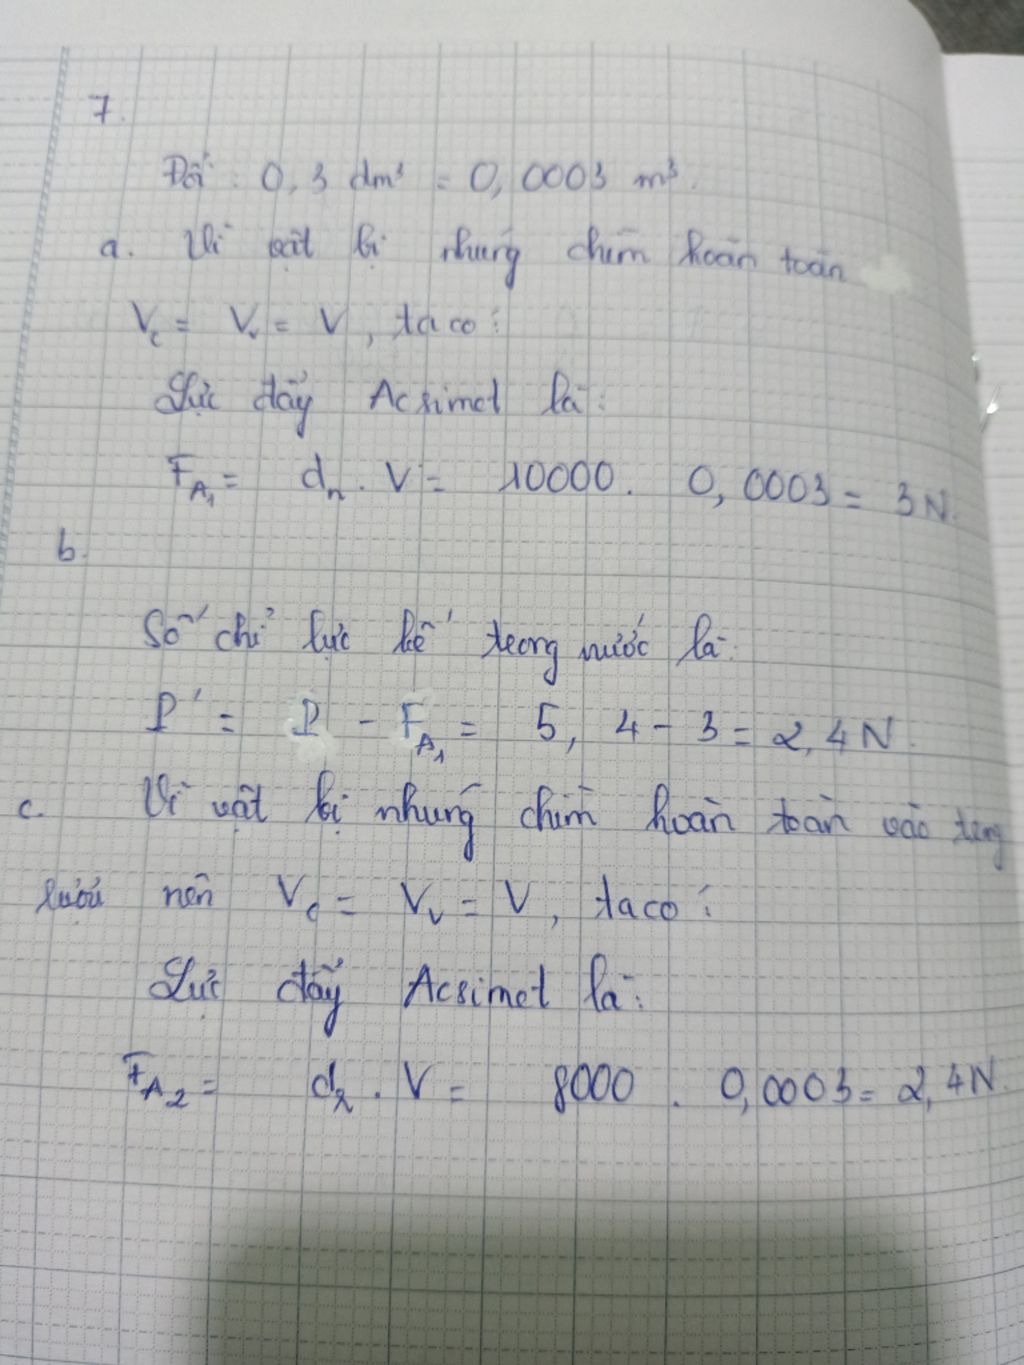 7.
Đổi : 0,3 dm³ = 0,0003 m³.
a. Vì vật bị nhúng chìm hoàn toàn
Vc = Vv = V, ta có :
Lực đẩy Acsimet là :
FA1 = dn . V = 10000 . 0,0003 = 3N.
b.
Số chỉ lực kế trong nước là :
P' = P - FA1 = 5,4 - 3 = 2,4N.
c. Vì vật bị nhúng chìm hoàn toàn vào trong
rượu nên Vc = Vv = V, ta có :
Lực đẩy Acsimet là :
FA2 = dr . V = 8000 . 0,0003 = 2,4N.